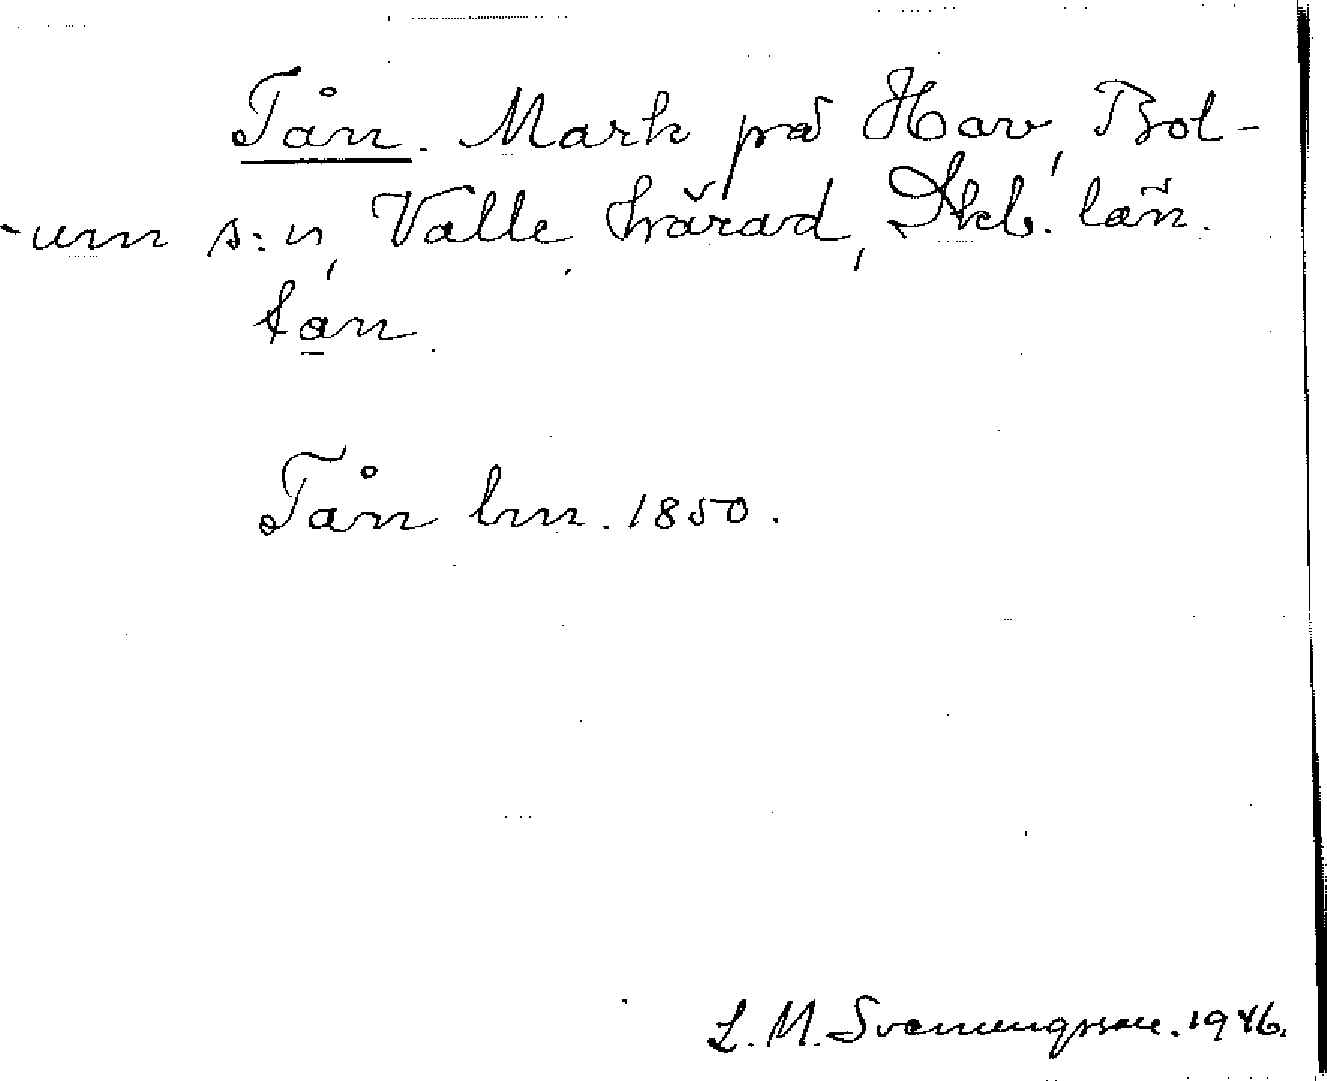 Tån. Mark på Hov, Bol-
-um s:n, Valle härad, Skb. län.
tån.
Tån lm. 1850.
L. M. Svenungsson. 1946.